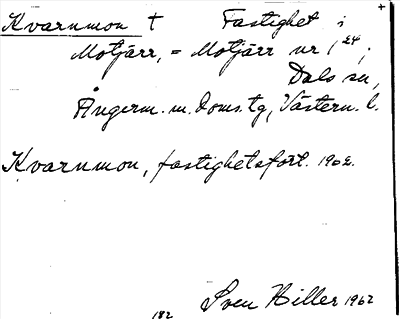 +
Kvarnmon † Fastighet i
Motjärr, = Motjärr nr 1²⁴,
Dals sn,
Ångerm. m. Doms.tg, Västern. l.
Kvarnmon, fastighetsfört. 1902.
182 Sven Hiller 1962